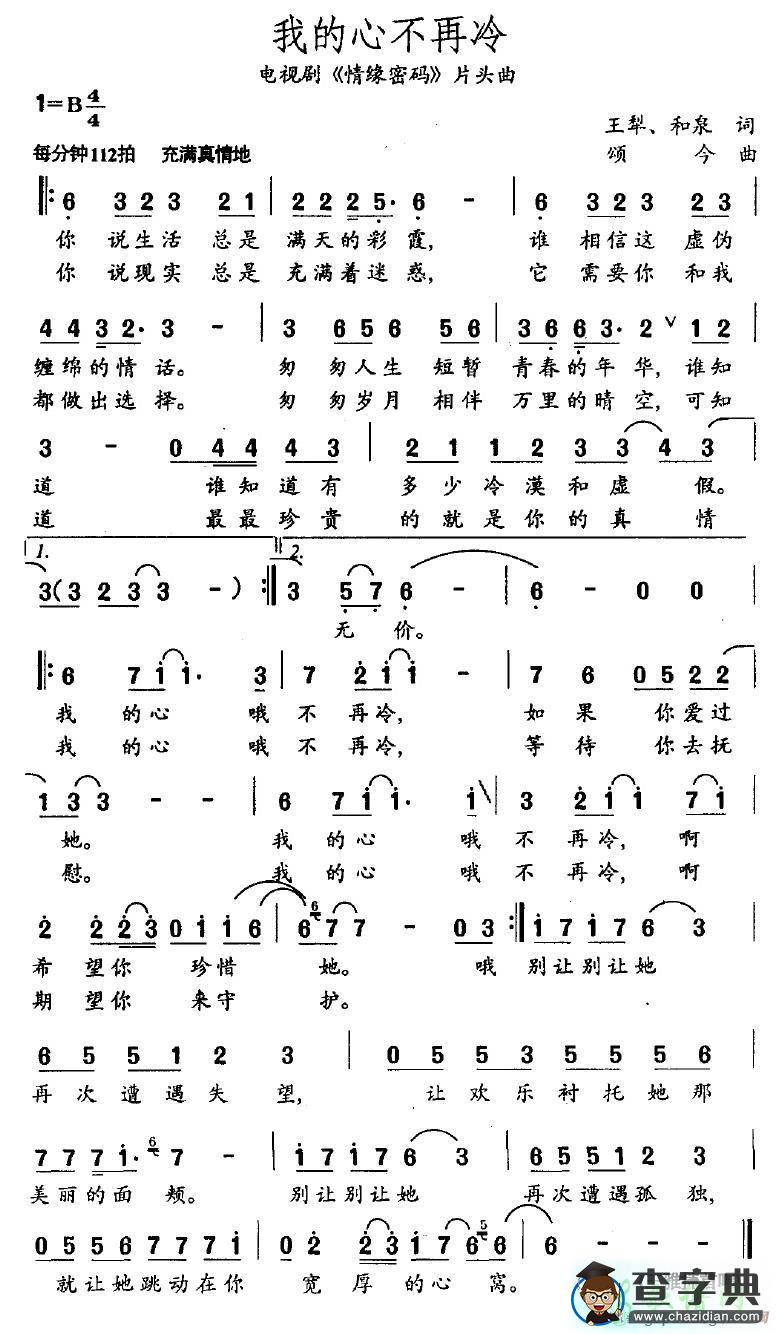 我的心不再冷
电视剧《情缘密码》片头曲
1=B 4/4
王犁、和泉 词
每分钟112拍 充满真情地
颂 今 曲
6 3 2 3 2 1 | 2 2 2 2 5· 6 - | 6 3 2 3 2 3
你 说生活 总是 满天的彩霞, 谁 相信这 虚伪
你 说现实 总是 充满着迷惑, 它 需要你 和我
4 4 3 2· 3 - | 3 6 5 6 5 6 | 3 6 6 3· 2 ∨ 1 2
缠绵的情话。 匆 匆人生 短暂 青春的年华,谁知
都做出选择。 匆 匆岁月 相伴 万里的晴空,可知
3 - 0 4 4 4 3 | 2 1 1 2 3 3 4 3
道 谁知道有 多少冷漠和虚 假。
道 最最珍贵 的就是你的真 情
1. 2.
3 ( 3 2 3 3 - ) :‖ 3 5 7 6 - | 6 - 0 0
无 价。
‖: 6 7 1 1· 3 | 7 2 1 1 - | 7 6 0 5 2 2
我 的心 哦 不 再冷, 如 果 你爱过
我 的心 哦 不 再冷, 等 待 你去抚
1 3 3 - - | 6 7 1 1· 1 | 3 2 1 1 7 1
她。 我 的心 哦 不 再冷, 啊
慰。 我 的心 哦 不 再冷, 啊
2 2 2 3 0 1 1 6 | 6 7 7 - 0 3 :‖ 1 7 1 7 6 3
希 望你 珍惜 她。 哦 别让别让她
期 望你 来守 护。
6 5 5 1 2 3 | 0 5 5 3 5 5 5 6
再次遭遇失 望, 让欢乐衬托她那
7 7 7 1· 7 - | 1 7 1 7 6 3 | 6 5 5 1 2 3
美丽的面 颊。 别让别让她 再次遭遇孤 独,
0 5 5 6 7 7 7 1 | 0 2 2 3 1 7 6 6 | 6 - -
就让她跳动在你 宽 厚的心 窝。
查字典
www.chazidian.com